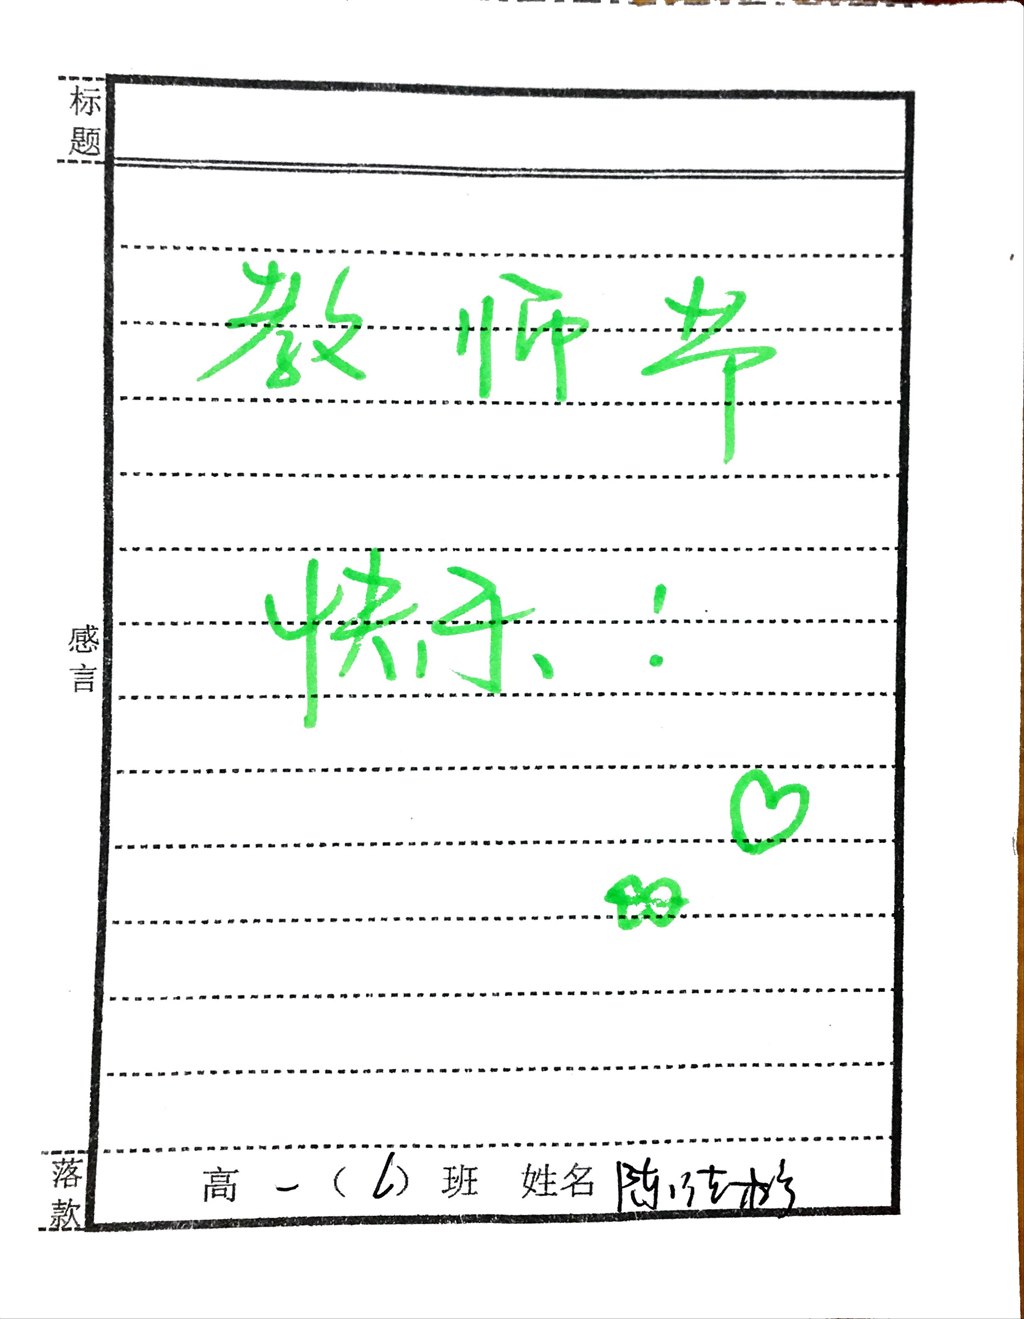 标题
教师节
快乐！
感言
落款
高一（6）班 姓名 陈